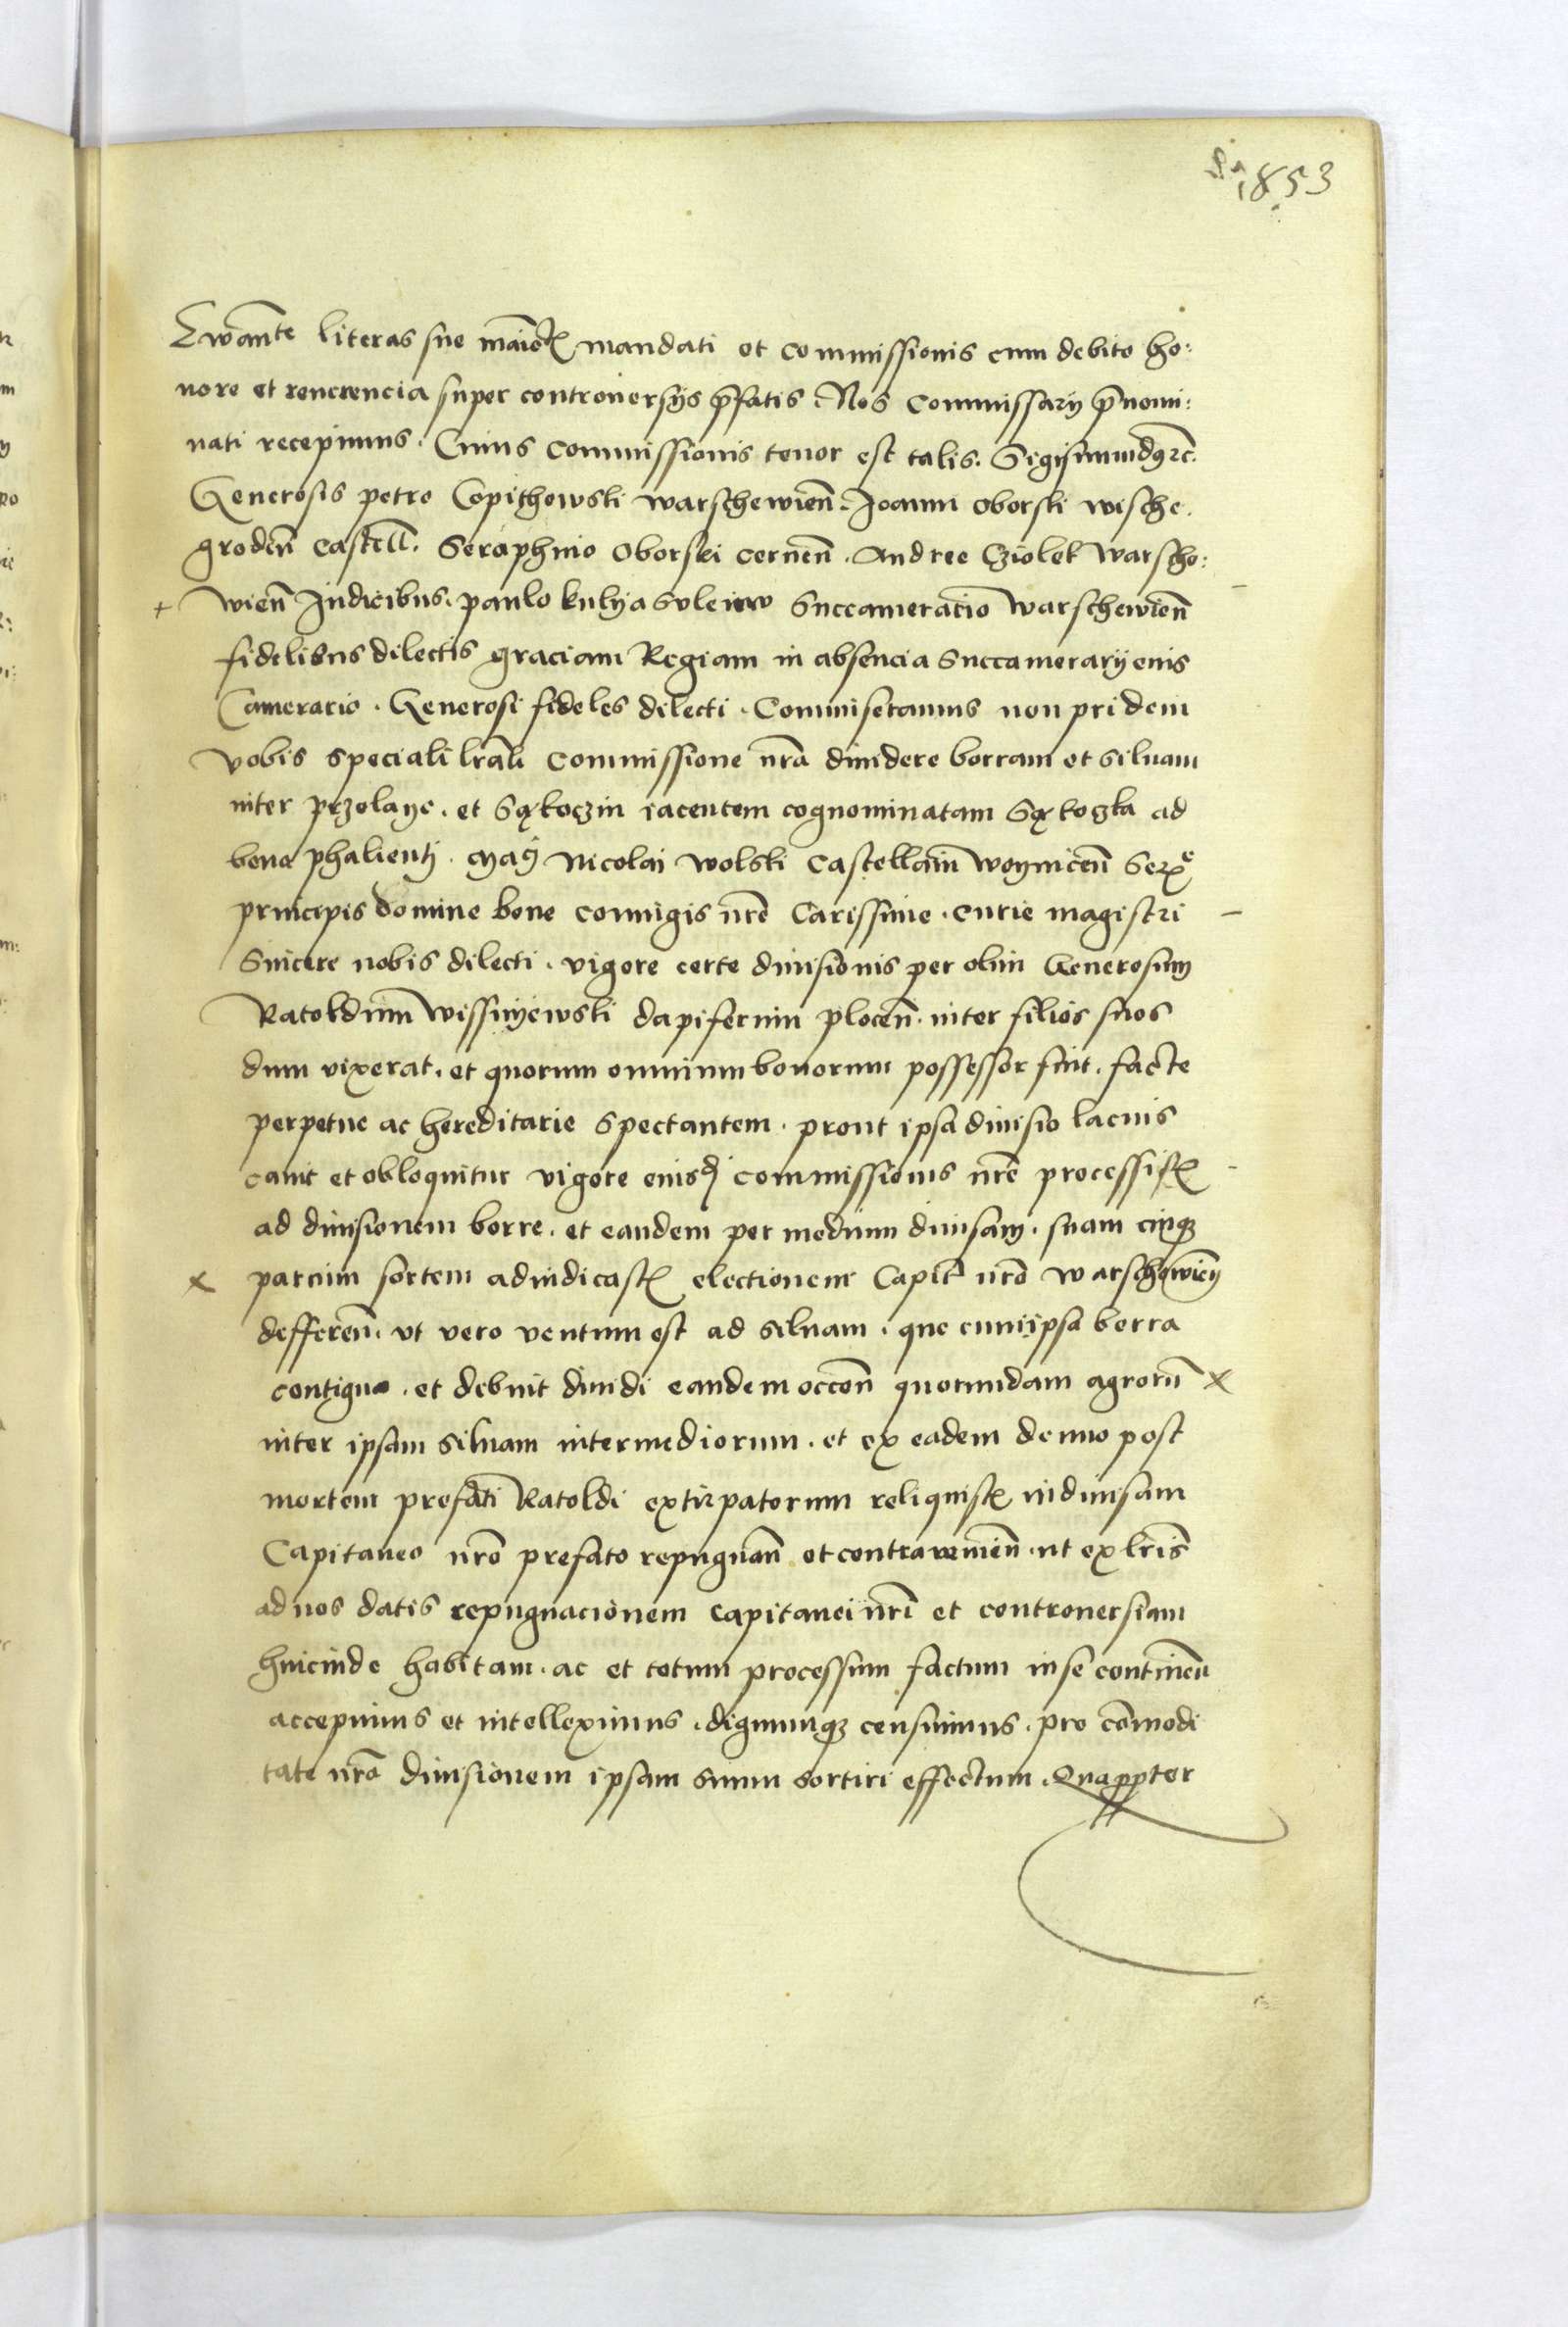 1853
Ewante literas sue maiet͛ mandati et commissionis cum debito ho:
nore et reuerencia super controuersijs p̄fatis. Nos commissarij p̄nomi:
nati recepimus. Cuius commissionis tenor est talis. Sigismundꝰ ꝛc.
Generosis petro Copithowski warschewień. Joanni oborski wische.
grodeń castell. Seraphino oborski cerneń. Andree Cziolek warscho:
+ wień Judicibus. paulo Succamerario warschewień
fidelibus dilectis graciam Regiam in absencia Succamerarij eius
Camerario. Generosi fideles dilecti. Commiseramus non pridem
vobis speciali lrāli commissione nrā diuidere borram et siluam
inter przolaye. et Sąkoczin iacentem cognominatam Sąkoczka ad
bona phalienti. Mgcī Nicolai wolski Castellani woyniceń Serme
principis domine bone coniugis nrē Carissime. curie magistri -
Sincere nobis dilecti. vigore certe diuisionis per olim Generosum
Ratoldum wissinyewski dapiferum ploceń. inter filios suos
dum vixerat. et quorum omnium bonorum possessor fuit. facte
perpetue ac hereditarie spectantem. prout ipsa diuisio lacius
canit et obloquitur vigore eiusd commissionis nrē processistꝭ -
ad diuisionem borre. et eandem per medium diuisam. suam cuiqꝫ
x parcium sortem adiudicastꝭ electionem Capit nrō warschewień
defferen. vt vero ventum est ad siluam. que cum ipsa borra
contigua. et debuit diuidi eandem occoń quorundam agrorū x
inter ipsam siluam intermediorum. et ex eadem denuo post
mortem prefati Ratoldi extirpatorum reliquistꝭ indiuisam
Capitaneo nrō prefato repugnań et contraueniēn. ut ex lrīs
ad nos datis repugnacionem capitanei nrī et controuersiam
huicinde habitam. ac et totum processum factum in se continen
accepimus et intelleximus. dignumqꝫ censuimus. pro cōmodi
tate nrā diuisionem ipsam suum sortiri effectum. Quapp̄ter